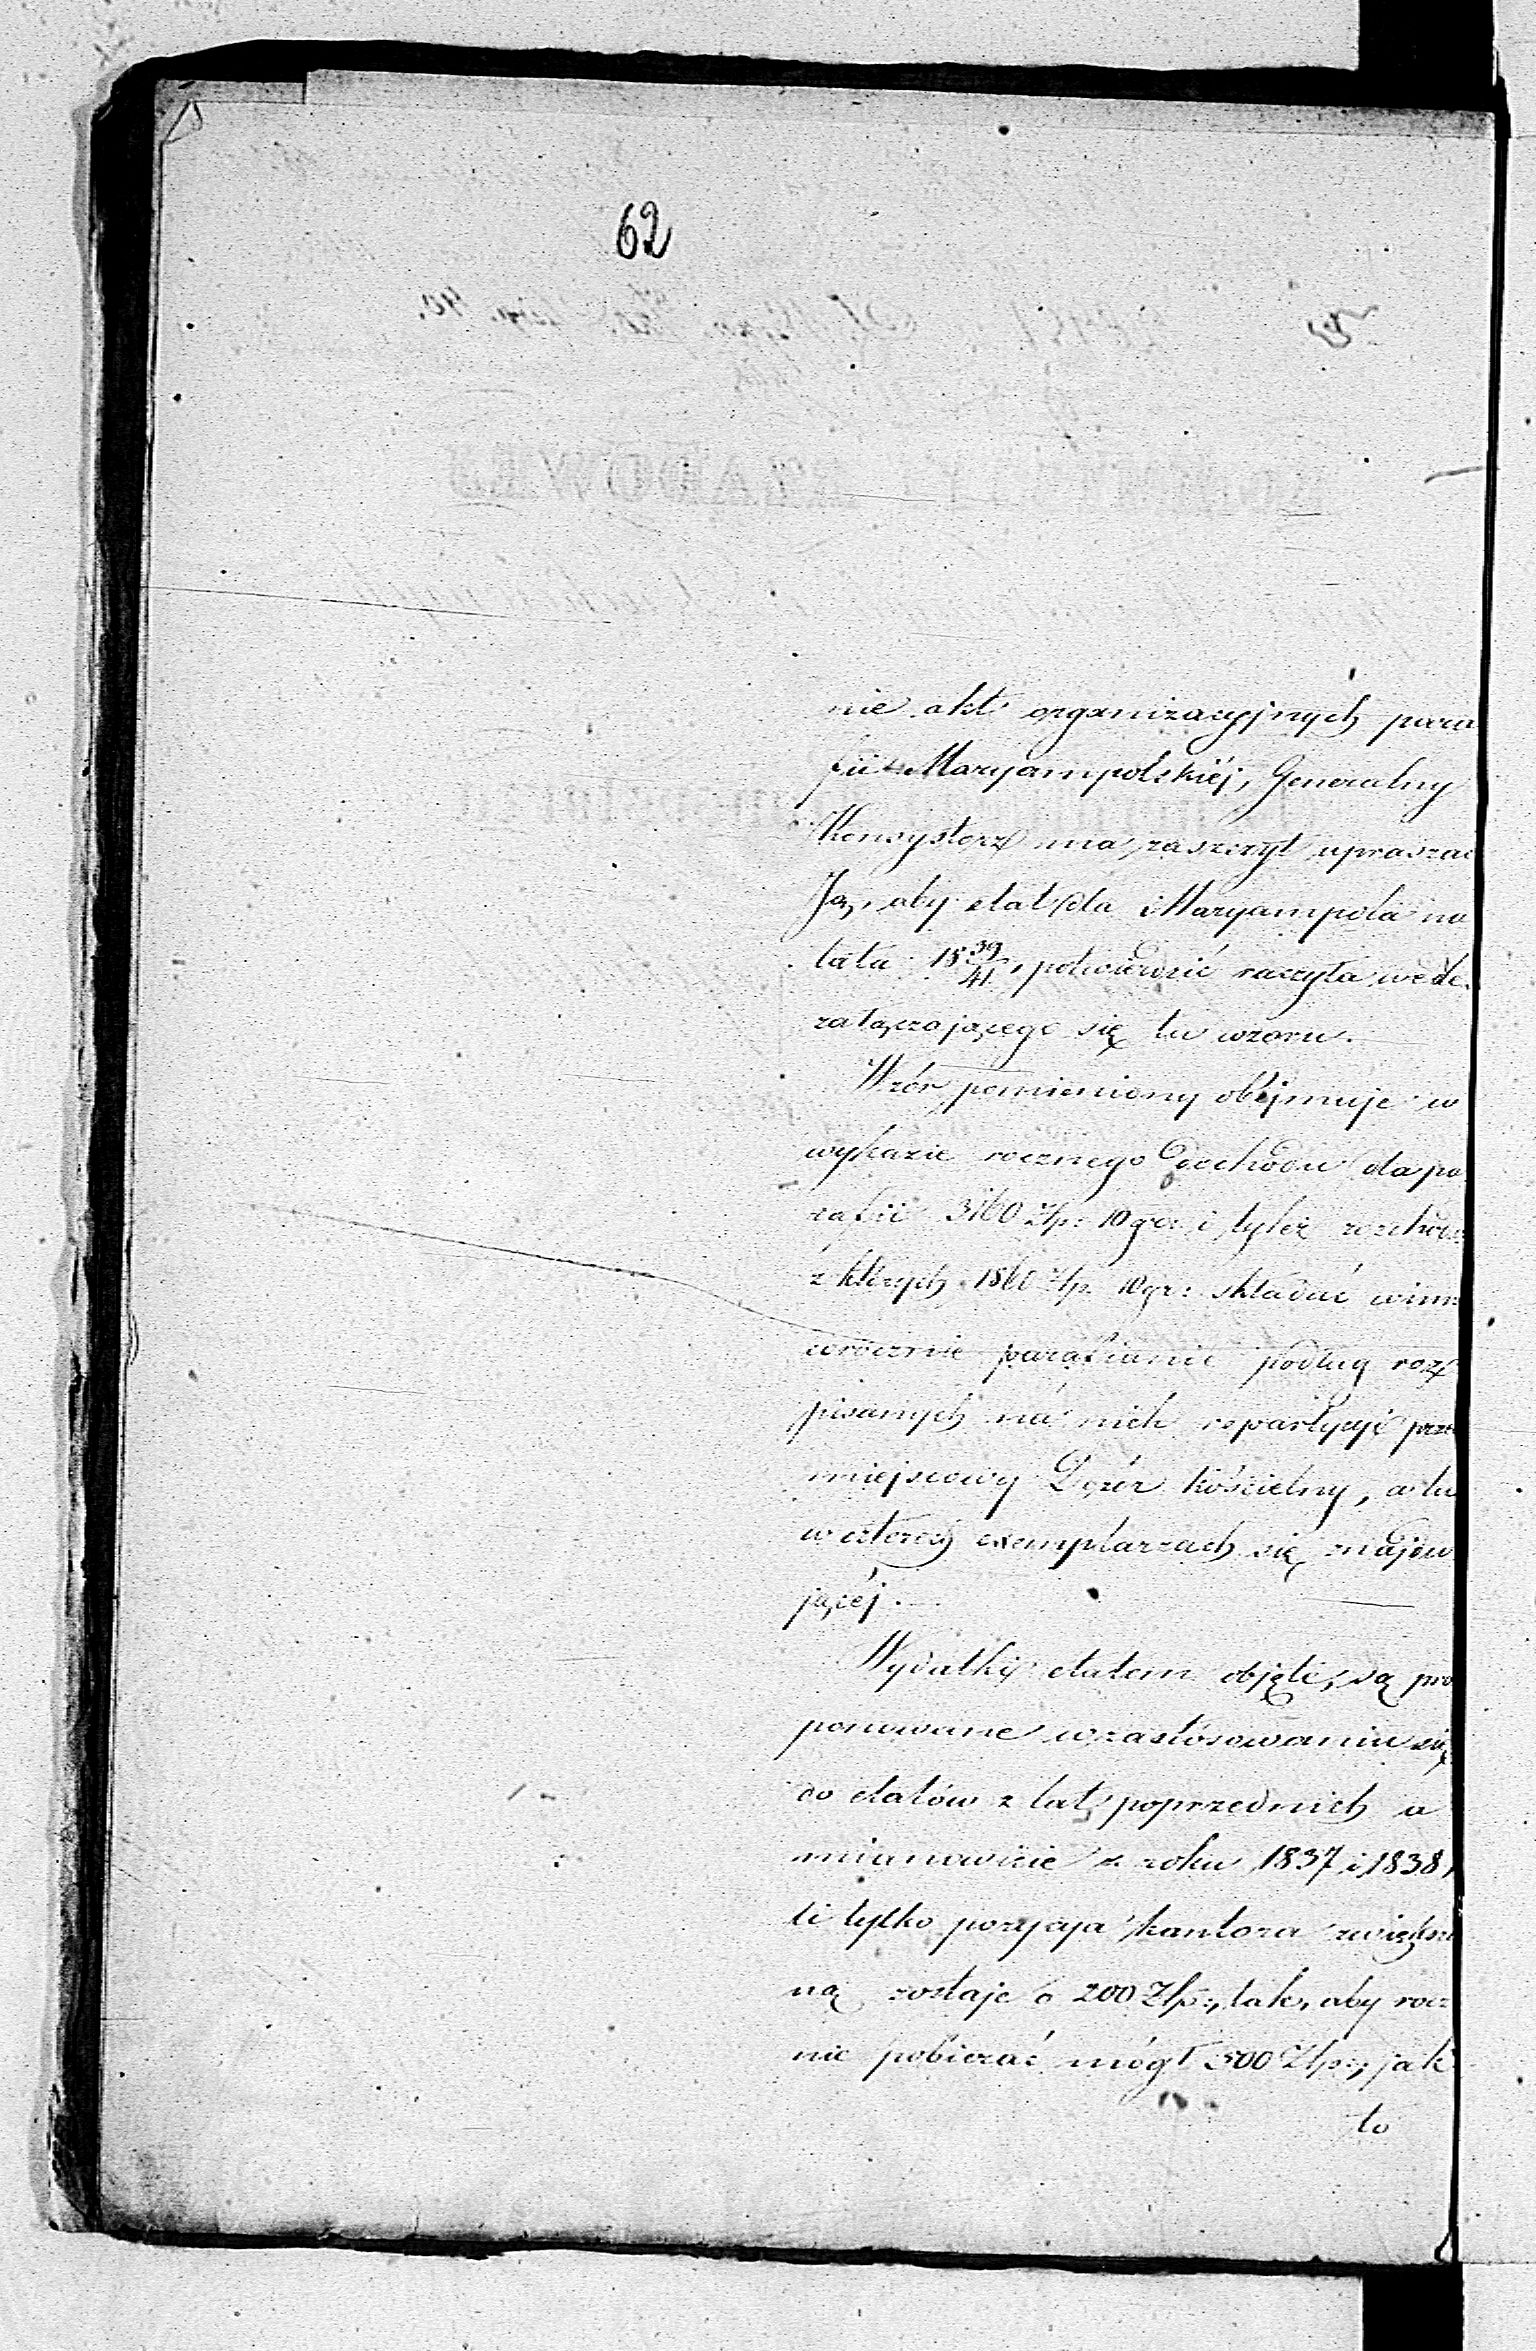 62
nie akt organizacyjnych para
fii Maryampolskiéj, Generalny
Konsystorz ma zaszczyt upraszać
Ją, aby etat dla Maryampola na
lata 18 39/41, potwierdzić raczyła wedle
załączającego się tu wzoru.
Wzór pomieniony obejmuje w
wykazie rocznego dochodu dla pa
rafii 3160 Złp: 10 gr: i tyleż rozchodu
z których 1860 Złp. 10 gr: składać winni
corocznie parafianie podług roz
pisanych na nich repartycyi przez
miejscowy Dozór kościelny, a tu
w czterech exemplarzach się znajdu
jącéj.
Wydatki etatem objęte, są pro
ponowane w zastósowaniu się
do etatów z lat poprzednich a
mianowicie z roku 1837 i 1838,
li tylko pozycya kantora zwiększo
ną zostaje o 200 Złp:, tak, aby rocz
nie pobierać mógł 500 Złp:, jak
to